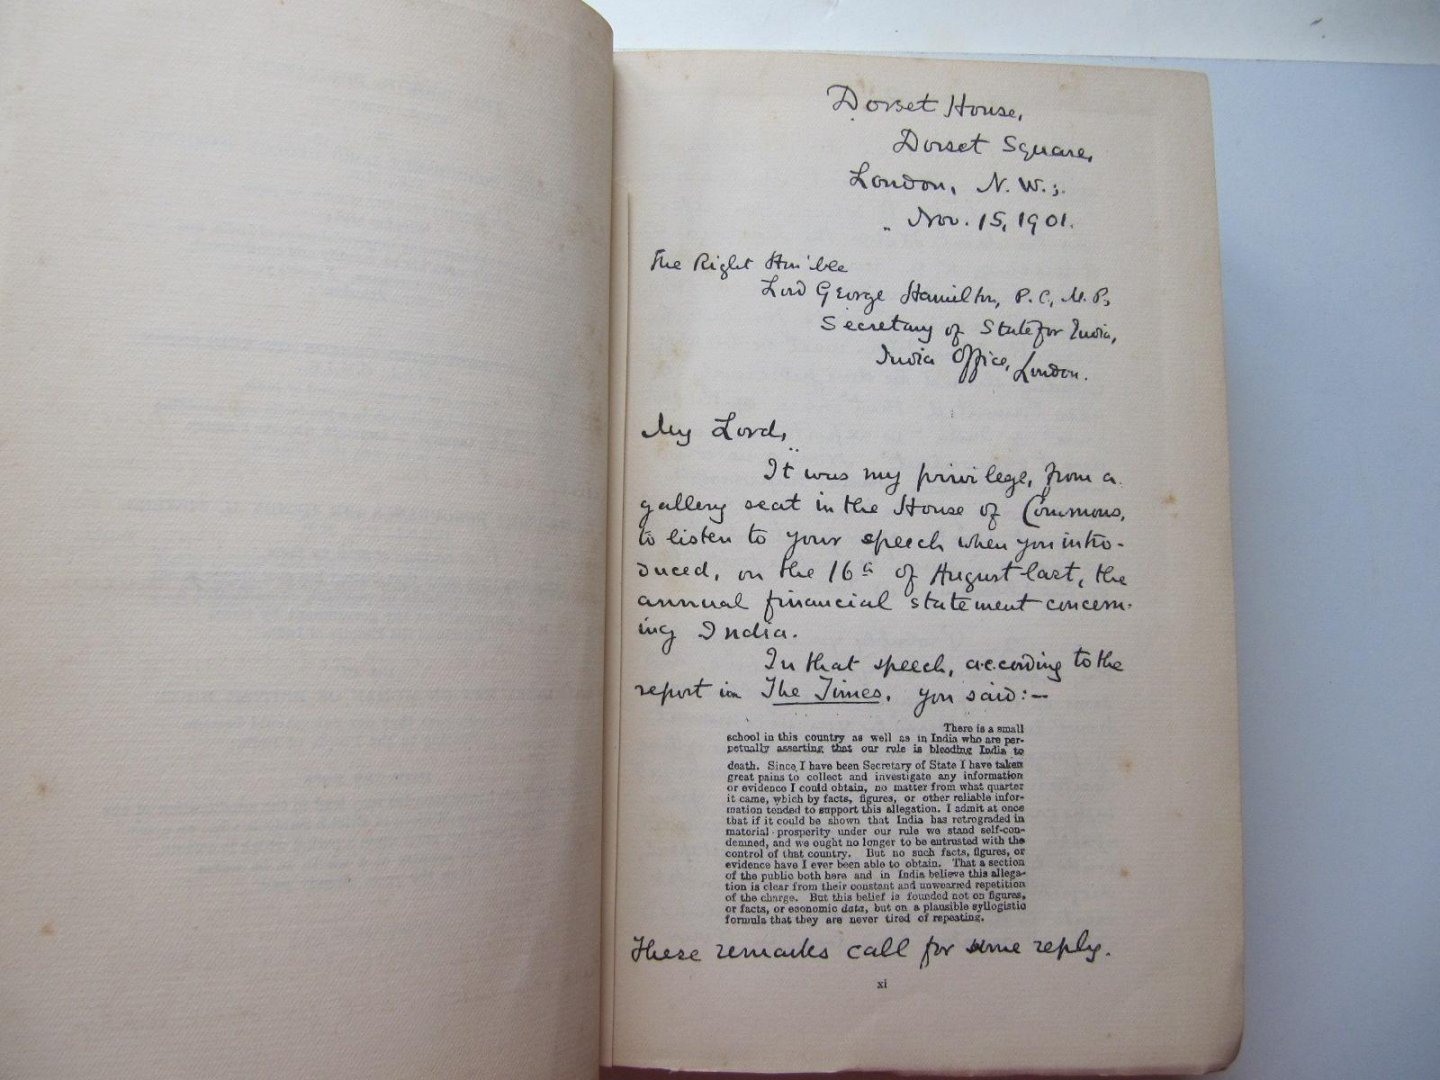 Dorset House,
Dorset Square,
London, N. W.;
Nov. 15, 1901.
The Right Hon'ble
Lord George Hamilton, P.C., M.P.,
Secretary of State for India,
India Office, London.
My Lord,
It was my privilege, from a
gallery seat in the House of Commons,
to listen to your speech when you intro-
duced, on the 16th of August last, the
annual financial statement concern-
ing India.
In that speech, according to the
report in The Times, you said:—
There is a small
school in this country as well as in India who are per-
petually asserting that our rule is bleeding India to
death. Since I have been Secretary of State I have taken
great pains to collect and investigate any information
or evidence I could obtain, no matter from what quarter
it came, which by facts, figures, or other reliable infor-
mation tended to support this allegation. I admit at once
that if it could be shown that India has retrograded in
material prosperity under our rule we stand self-con-
demned, and we ought no longer to be entrusted with the
control of that country. But no such facts, figures, or
evidence have I ever been able to obtain. That a section
of the public both here and in India believe this allega-
tion is clear from their constant and unwearied repetition
of the charge. But this belief is founded not on figures,
or facts, or economic data, but on a plausible syllogistic
formula that they are never tired of repeating.
These remarks call for some reply.
xi